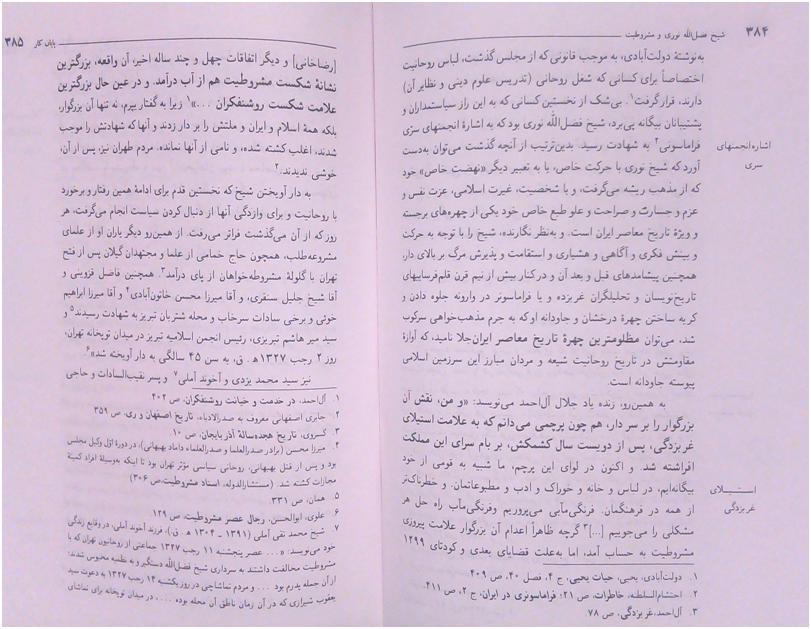 ۳۸۴ شیخ فضل‌الله نوری و مشروطیت
به‌نوشتهٔ دولت‌آبادی، به موجب قانونی که از مجلس گذشت، لباس روحانیت
اختصاصاً برای کسانی که شغل روحانی (تدریس علوم دینی و نظایر آن)
دارند، قرار گرفت۱. بی‌شک از نخستین کسانی که به این راز سیاستمداران و
پشتیبانان بیگانه پی‌برد، شیخ فضل‌الله نوری بود که به اشارهٔ انجمنهای سرّی
فراماسونی۲ به شهادت رسید. بدین‌ترتیب از آنچه گذشت می‌توان به‌دست
آورد که شیخ نوری با حرکت خاص، یا به تعبیر دیگر «نهضت خاص» خود
که از مذهب ریشه می‌گرفت، و یا شخصیت، غیرت اسلامی، عزت نفس و
عزم و جسارت و صراحت و علو طبع خاص خود یکی از چهره‌های برجسته
و ویژهٔ تاریخ معاصر ایران است. و به‌نظر نگارنده، شیخ را با توجه به حرکت
و بینش فکری و آگاهی و هشیاری و استقامت و پذیرش مرگ بر بالای دار،
همچنین پیشامدهای قبل و بعد آن و در کنار بیش از نیم قرن قلم‌فرساییهای
تاریخ‌نویسان و تحلیلگران غربزده و یا فراماسونر در وارونه جلوه دادن و
کریه ساختن چهرهٔ درخشان و جاودانه او که به جرم مذهب‌خواهی سرکوب
شد، می‌توان مظلومترین چهرهٔ تاریخ معاصر ایران‌جلا نامید، که آوازهٔ
مقاومتش در تاریخ روحانیت شیعه و مردان مبارز این سرزمین اسلامی
پیوسته جاودانه است.
به همین‌رو، زنده یاد جلال آل‌احمد می‌نویسد: «و من، نقش آن
بزرگوار را بر سر دار، هم چون پرچمی می‌دانم که به علامت استیلای
غربزدگی، پس از دویست سال کشمکش، بر بام سرای این مملکت
افراشته شد. و اکنون در لوای این پرچم، ما شبیه به قومی از خود
بیگانه‌ایم، در لباس و خانه و خوراک و ادب و مطبوعاتمان. و خطرناک‌تر
از همه در فرهنگمان. فرنگی‌مآبی می‌پروریم و فرنگی‌مآب راه حل هر
مشکلی را می‌جوییم [...]۳ گرچه ظاهراً اعدام آن بزرگوار علامت پیروزی
مشروطیت به حساب آمد، اما به‌علت قضایای بعدی و کودتای ۱۲۹۹
۱. دولت‌آبادی، یحیی، حیات یحیی، ج ۴، فصل ۴۰، ص ۴۰۹
۲. احتشام‌السلطنه، خاطرات، ص ۲۱؛ فراماسونری در ایران، ج ۲، ص ۴۱۱
۳. آل‌احمد، غربزدگی، ص ۷۸
اشاره‌انجمنهای
سری
استـیـلای
غربزدگی
پایان کار ۳۸۵
[رضاخانی] و دیگر اتفاقات چهل و چند ساله اخیر، آن واقعه، بزرگترین
نشانهٔ شکست مشروطیت هم از آب درآمد. و در عین حال بزرگترین
علامت شکست روشنفکران ...»۱ زیرا به گفتار بیرم، نه تنها آن بزرگوار،
بلکه همهٔ اسلام و ایران و ملتش را بر دار زدند و آنها که شهادتش را موجب
شدند، اغلب کشته شده، و نامی از آنها نمانده. مردم طهران نیز، پس از آن،
خوشی ندیدند.۲
به دار آویختن شیخ که نخستین قدم برای ادامهٔ همین رفتار و برخورد
با روحانیت و برای وازدگی آنها از دنبال کردن سیاست انجام می‌گرفت، هر
روز که از آن می‌گذشت فراتر می‌رفت. از همین‌رو دیگر یاران او از علمای
مشروعه‌طلب، همچون حاج خمامی از علما و مجتهدان گیلان پس از فتح
تهران با گلولهٔ مشروطه‌خواهان از پای درآمد۳. همچنین فاضل قزوینی و
آقا شیخ جلیل سنقری، و آقا میرزا محسن خاتون‌آبادی۴ و آقا میرزا ابراهیم
خوئی و برخی سادات سرخاب و محله شتربان تبریز به شهادت رسیدند۵ و
سید میر هاشم تبریزی، رئیس انجمن اسلامیه تبریز در میدان توپخانه تهران،
روز ۲ رجب ۱۳۲۷ هـ . ق، به سن ۴۵ سالگی به دار آویخته شد».۶
نیز سید محمد یزدی و آخوند آملی۷ و پسر نقیب‌السادات و حاجی
۱. آل‌احمد، در خدمت و خیانت روشنفکران، ص ۴۰۲
۲. جابری اصفهانی معروف به صدرالادباء، تاریخ اصفهان و ری، ص ۳۵۹
۳. کسروی، تاریخ هجده‌سالهٔ آذربایجان، ص ۱۰.
۴. میرزا محسن (برادر صدرالعلما و صدرالعلماء داماد بهبهانی)، در دورهٔ اوّل وکیل مجلس
بود و پس از قتل بهبهانی، روحانی سیاسی مؤثر تهران بود تا اینکه به‌وسیلهٔ افراد کمیتهٔ
مجازات کشته شد. (مستشارالدوله، اسناد مشروطیت، ص ۳۰۶)
۵. همان، ص ۳۳۱.
۶. علوی، ابوالحسن، رجال عصر مشروطیت، ص ۱۲۹
۷. شیخ محمد تقی آملی (۱۳۹۱ ـ ۱۳۰۴ هـ . ق)، فرزند آخوند آملی، در وقایع زندگی
خود می‌نویسد: «... عصر پنجشنبه ۱۱ رجب ۱۳۲۷ جماعتی از روحانیون تهران که با
مشروطیت مخالفت داشتند به سرداری شیخ فضل‌الله دستگیر و به نظمیه محبوس شدند؛
از آن جمله پدرم بود ... و مردم تماشاچی در روز یکشنبه ۱۴ رجب ۱۳۲۷ به دعوت سید
یعقوب شیرازی که در آن زمان ناطق آن محله بوده ... ، در میدان توپخانه برای تماشای